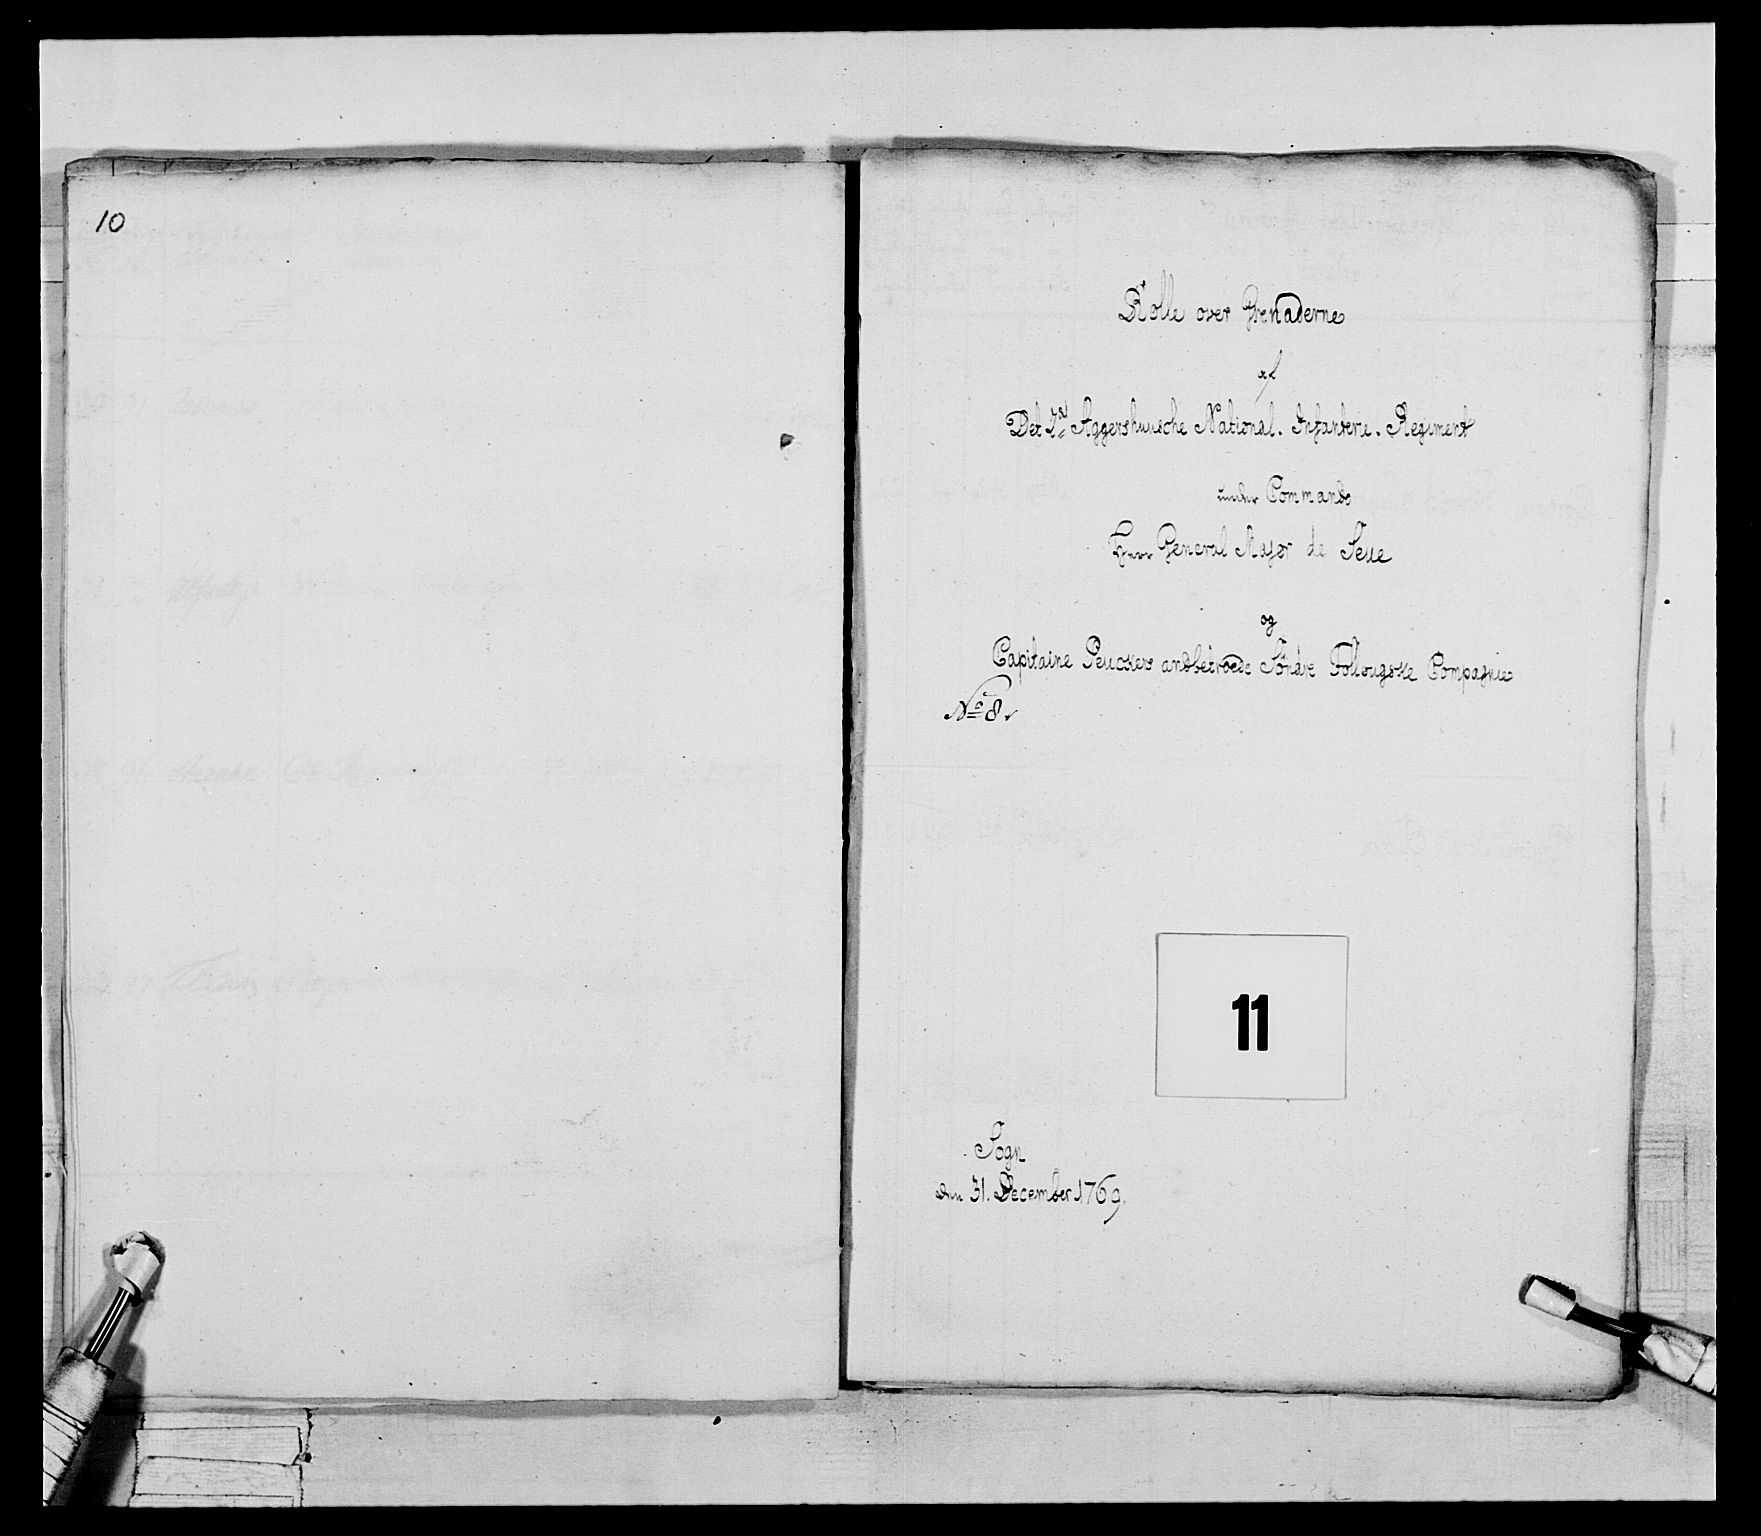 10
Rolle over Grenaderne
af
Det 2det Aggershuusche National. Infanterie. Regiment
under Commando
Herr General Major de Seue
og
Capitaine Peuckers andbetroede Söndre Follougske Compagnie
No 8.
11
Sogn
den 31. December 1769.